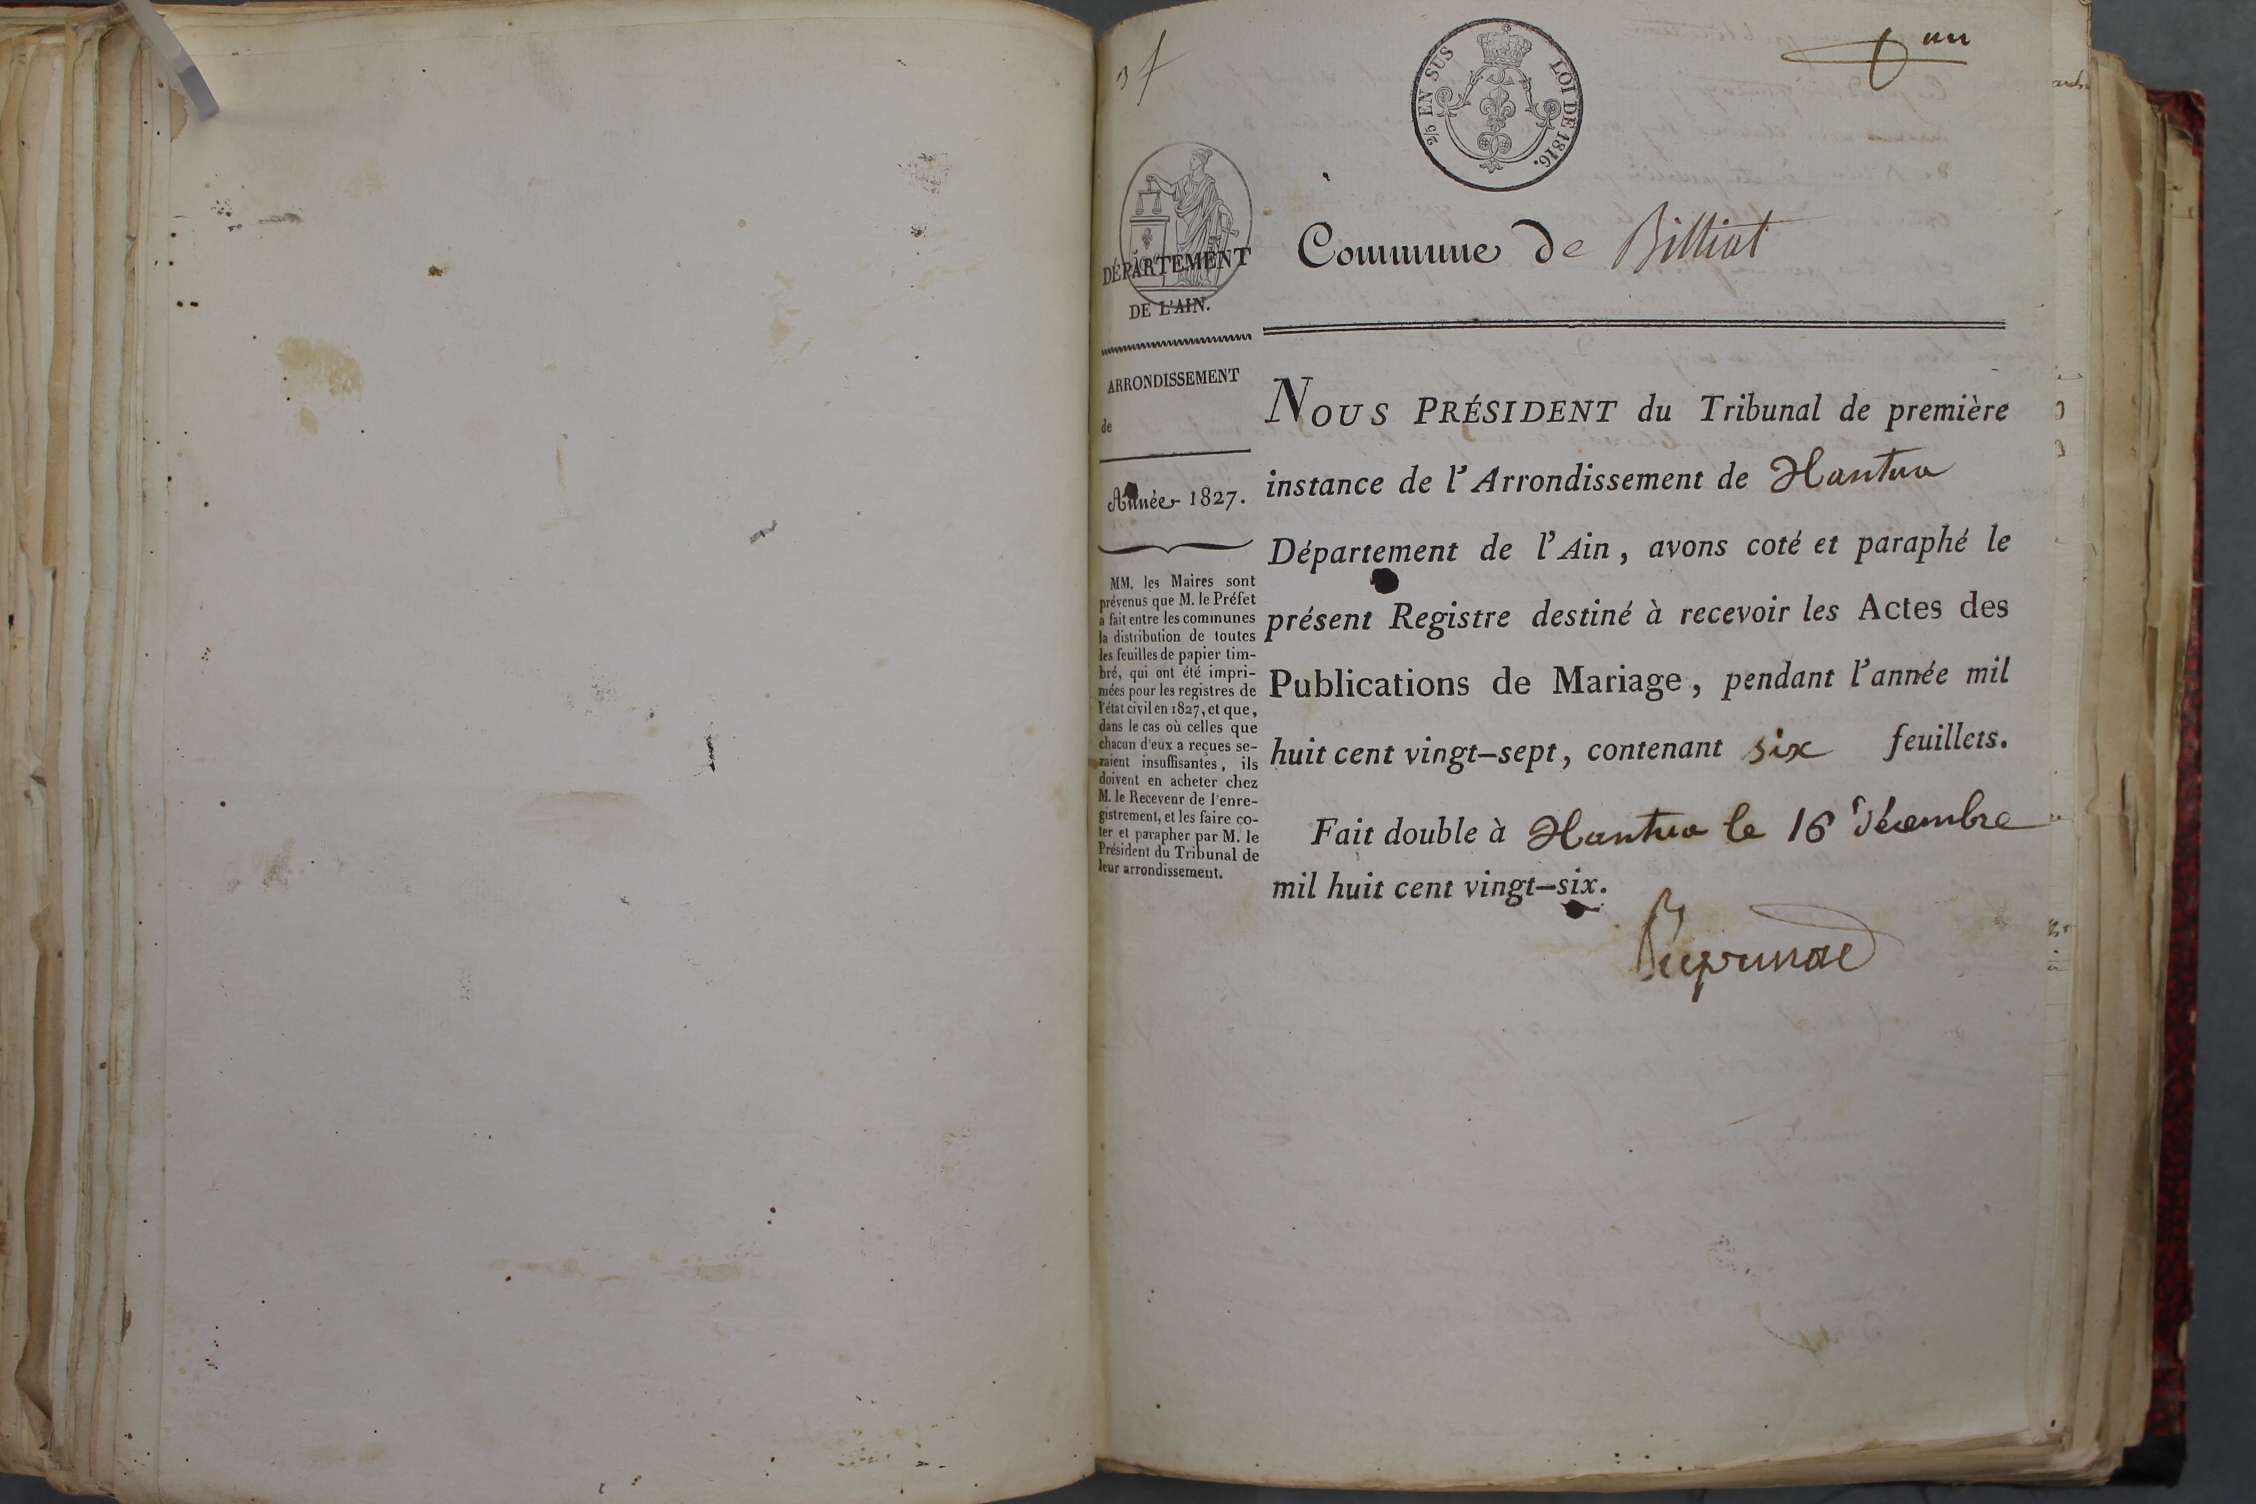 3 f
un
2/5 EN SUS LOI DE 1816.
DÉPARTEMENT
DE L'AIN.
ARRONDISSEMENT
de
Année 1827.
MM. les Maires sont
prévenus que M. le Préfet
a fait entre les communes
la distribution de toutes
les feuilles de papier tim-
bré, qui ont été impri-
mées pour les registres de
l'état civil en 1827, et que,
dans le cas où celles que
chacun d'eux a reçues se-
raient insuffisantes, ils
doivent en acheter chez
M. le Receveur de l'enre-
gistrement, et les faire co-
ter et parapher par M. le
Président du Tribunal de
leur arrondissement.
Commune de Billiat
NOUS PRÉSIDENT du Tribunal de première
instance de l'Arrondissement de Nantua
Département de l'Ain, avons coté et paraphé le
présent Registre destiné à recevoir les Actes des
Publications de Mariage, pendant l'année mil
huit cent vingt-sept, contenant six feuillets.
Fait double à Nantua le 16 Décembre
mil huit cent vingt-six.